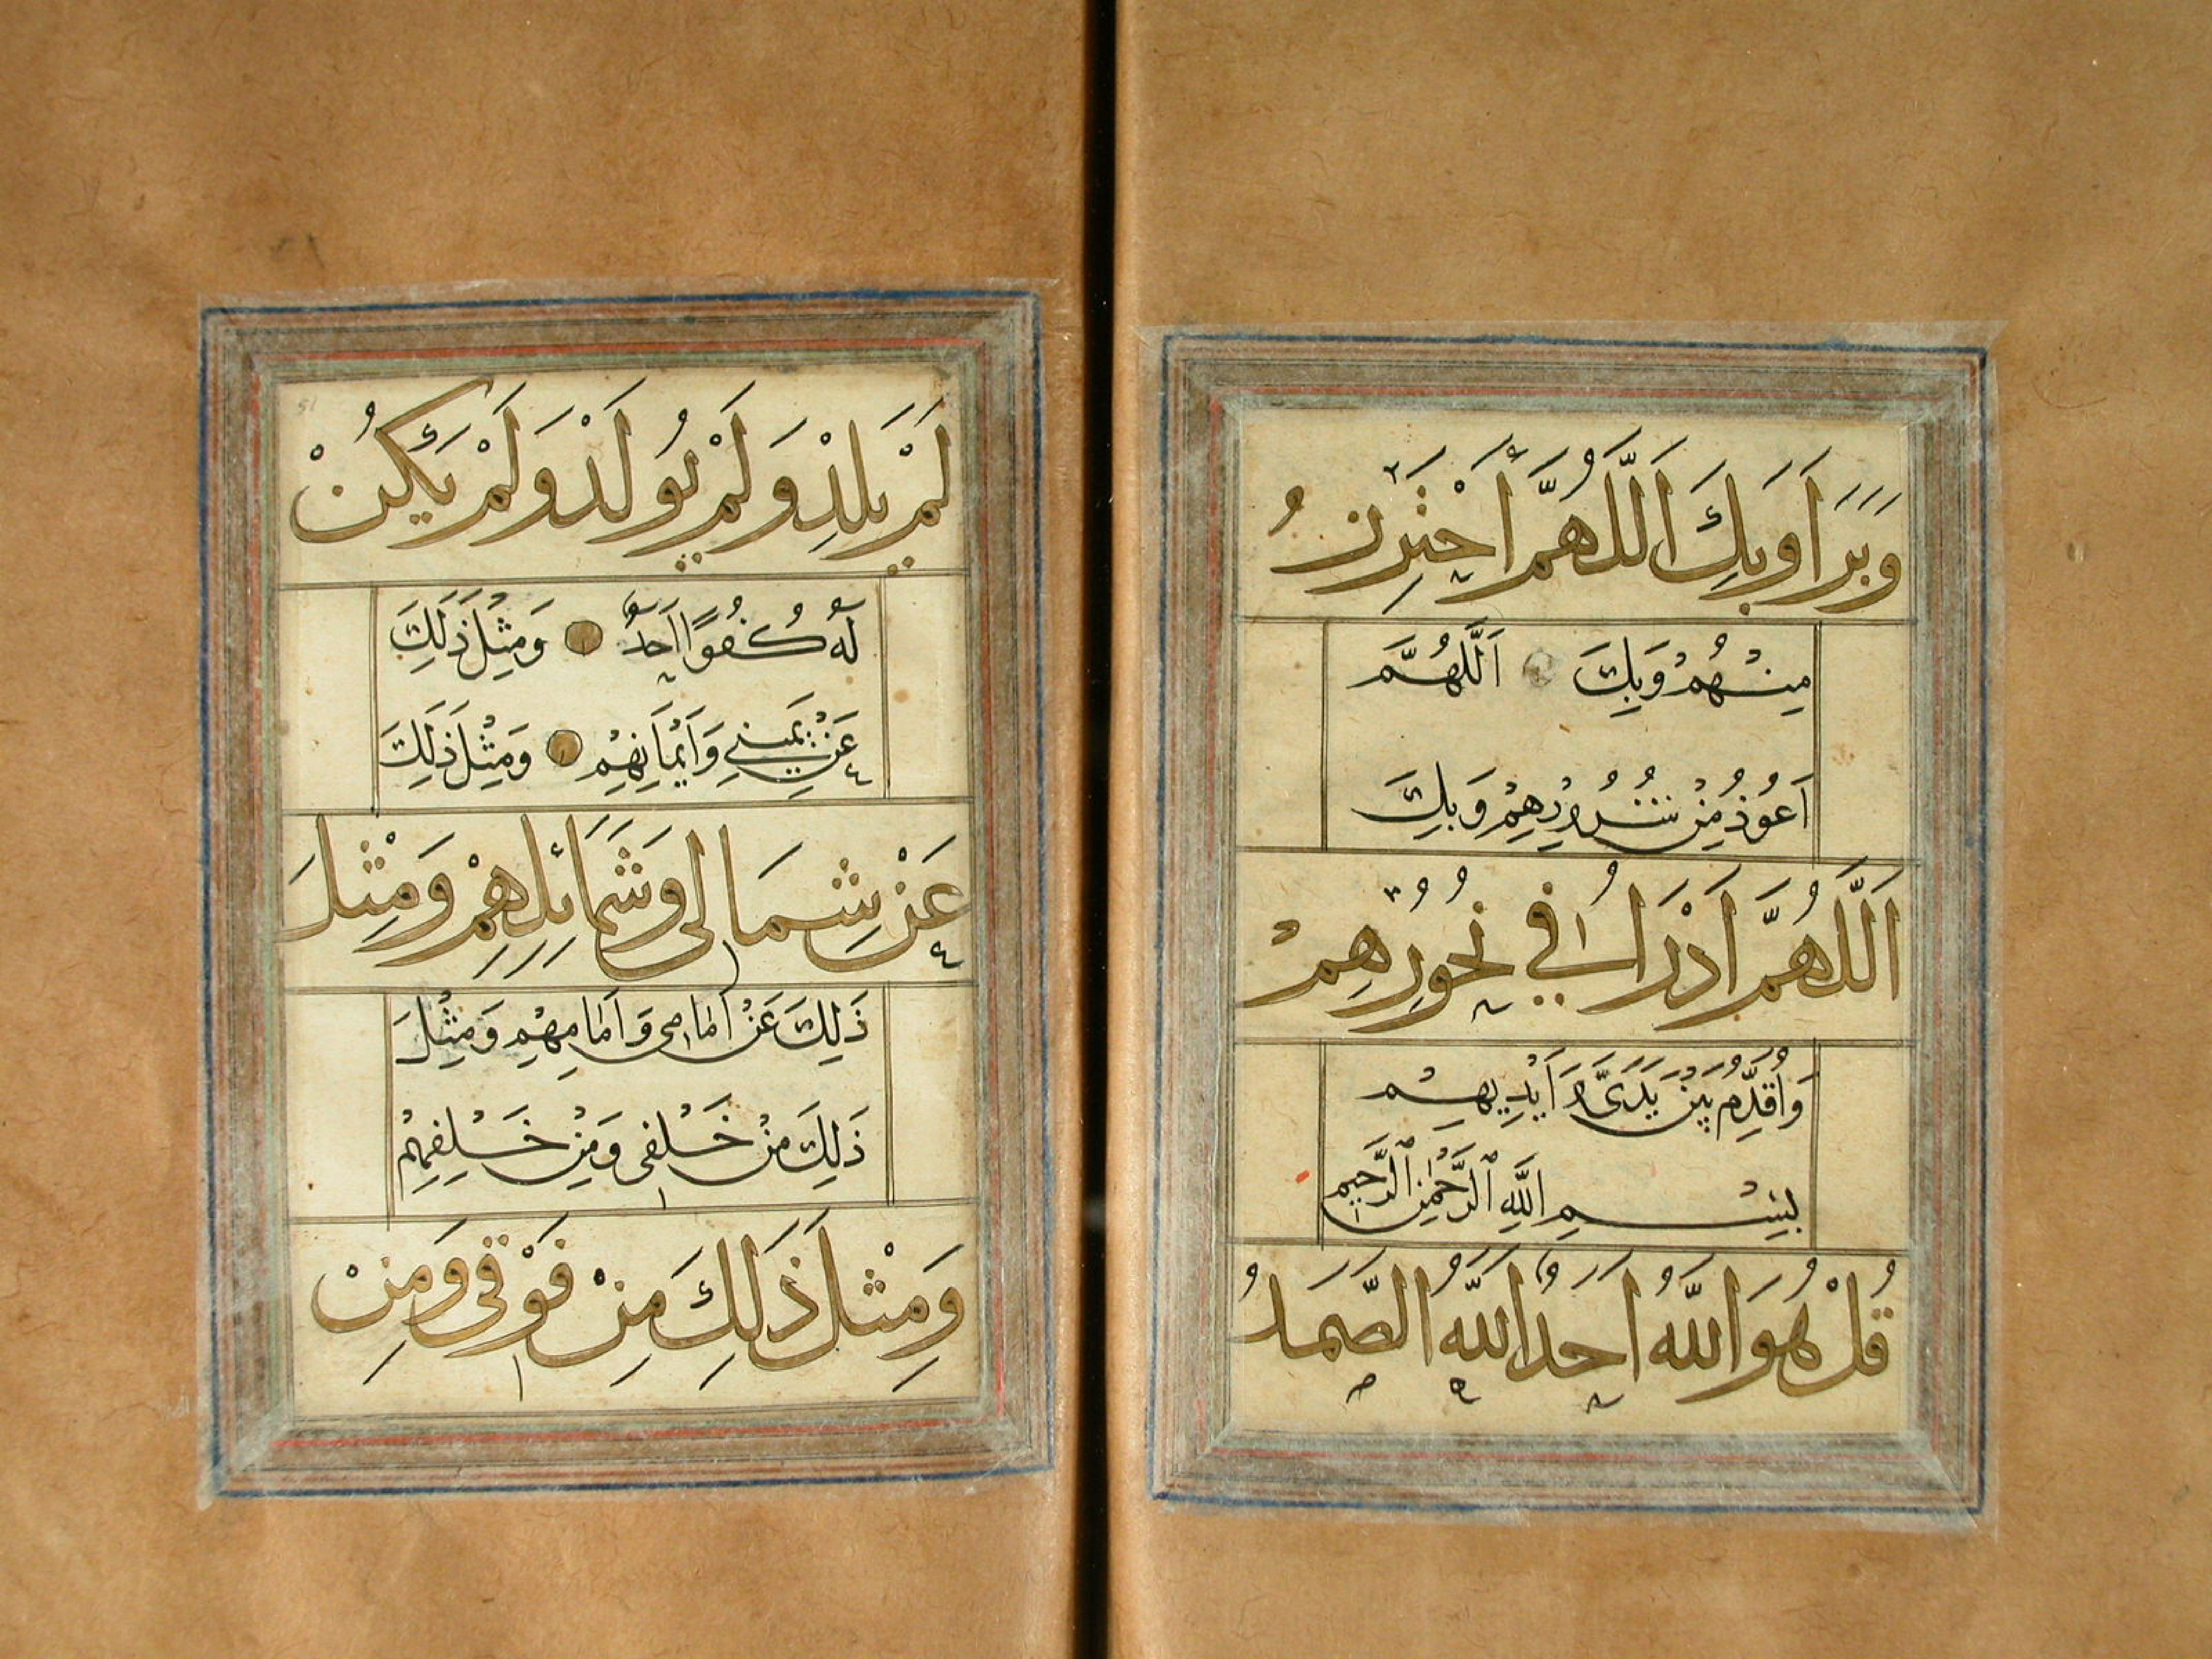 وَبَرَاَ وَبِكَ اَللّٰهُمَّ اَحْتَرِزُ
مِنْهُمْ وَبِكَ اَللّٰهُمَّ
اَعُوذُ مِنْ شُرُورِهِمْ وَبِكَ
اَللّٰهُمَّ اَدْرَاُ فِي نُحُورِهِمْ
وَاُقَدِّمُ بَيْنَ يَدَىَّ وَاَيْدِيهِمْ
بِسْمِ اللّٰهِ الرَّحْمٰنِ الرَّحِيمِ
قُلْ هُوَ اللّٰهُ اَحَدٌ اَللّٰهُ الصَّمَدُ
لَمْ يَلِدْ وَلَمْ يُولَدْ وَلَمْ يَكُنْ
لَهُ كُفُوًا اَحَدٌ وَمِثْلَ ذٰلِكَ
عَنْ يَمِينِي وَاَيْمَانِهِمْ وَمِثْلَ ذٰلِكَ
عَنْ شِمَالِى وَشَمَائِلِهِمْ وَمِثْلَ
ذٰلِكَ عَنْ اَمَامِى وَاَمَامِهِمْ وَمِثْلَ
ذٰلِكَ مِنْ خَلْفِى وَمِنْ خَلْفِهِمْ
وَمِثْلَ ذٰلِكَ مِنْ فَوْقِى وَمِنْ